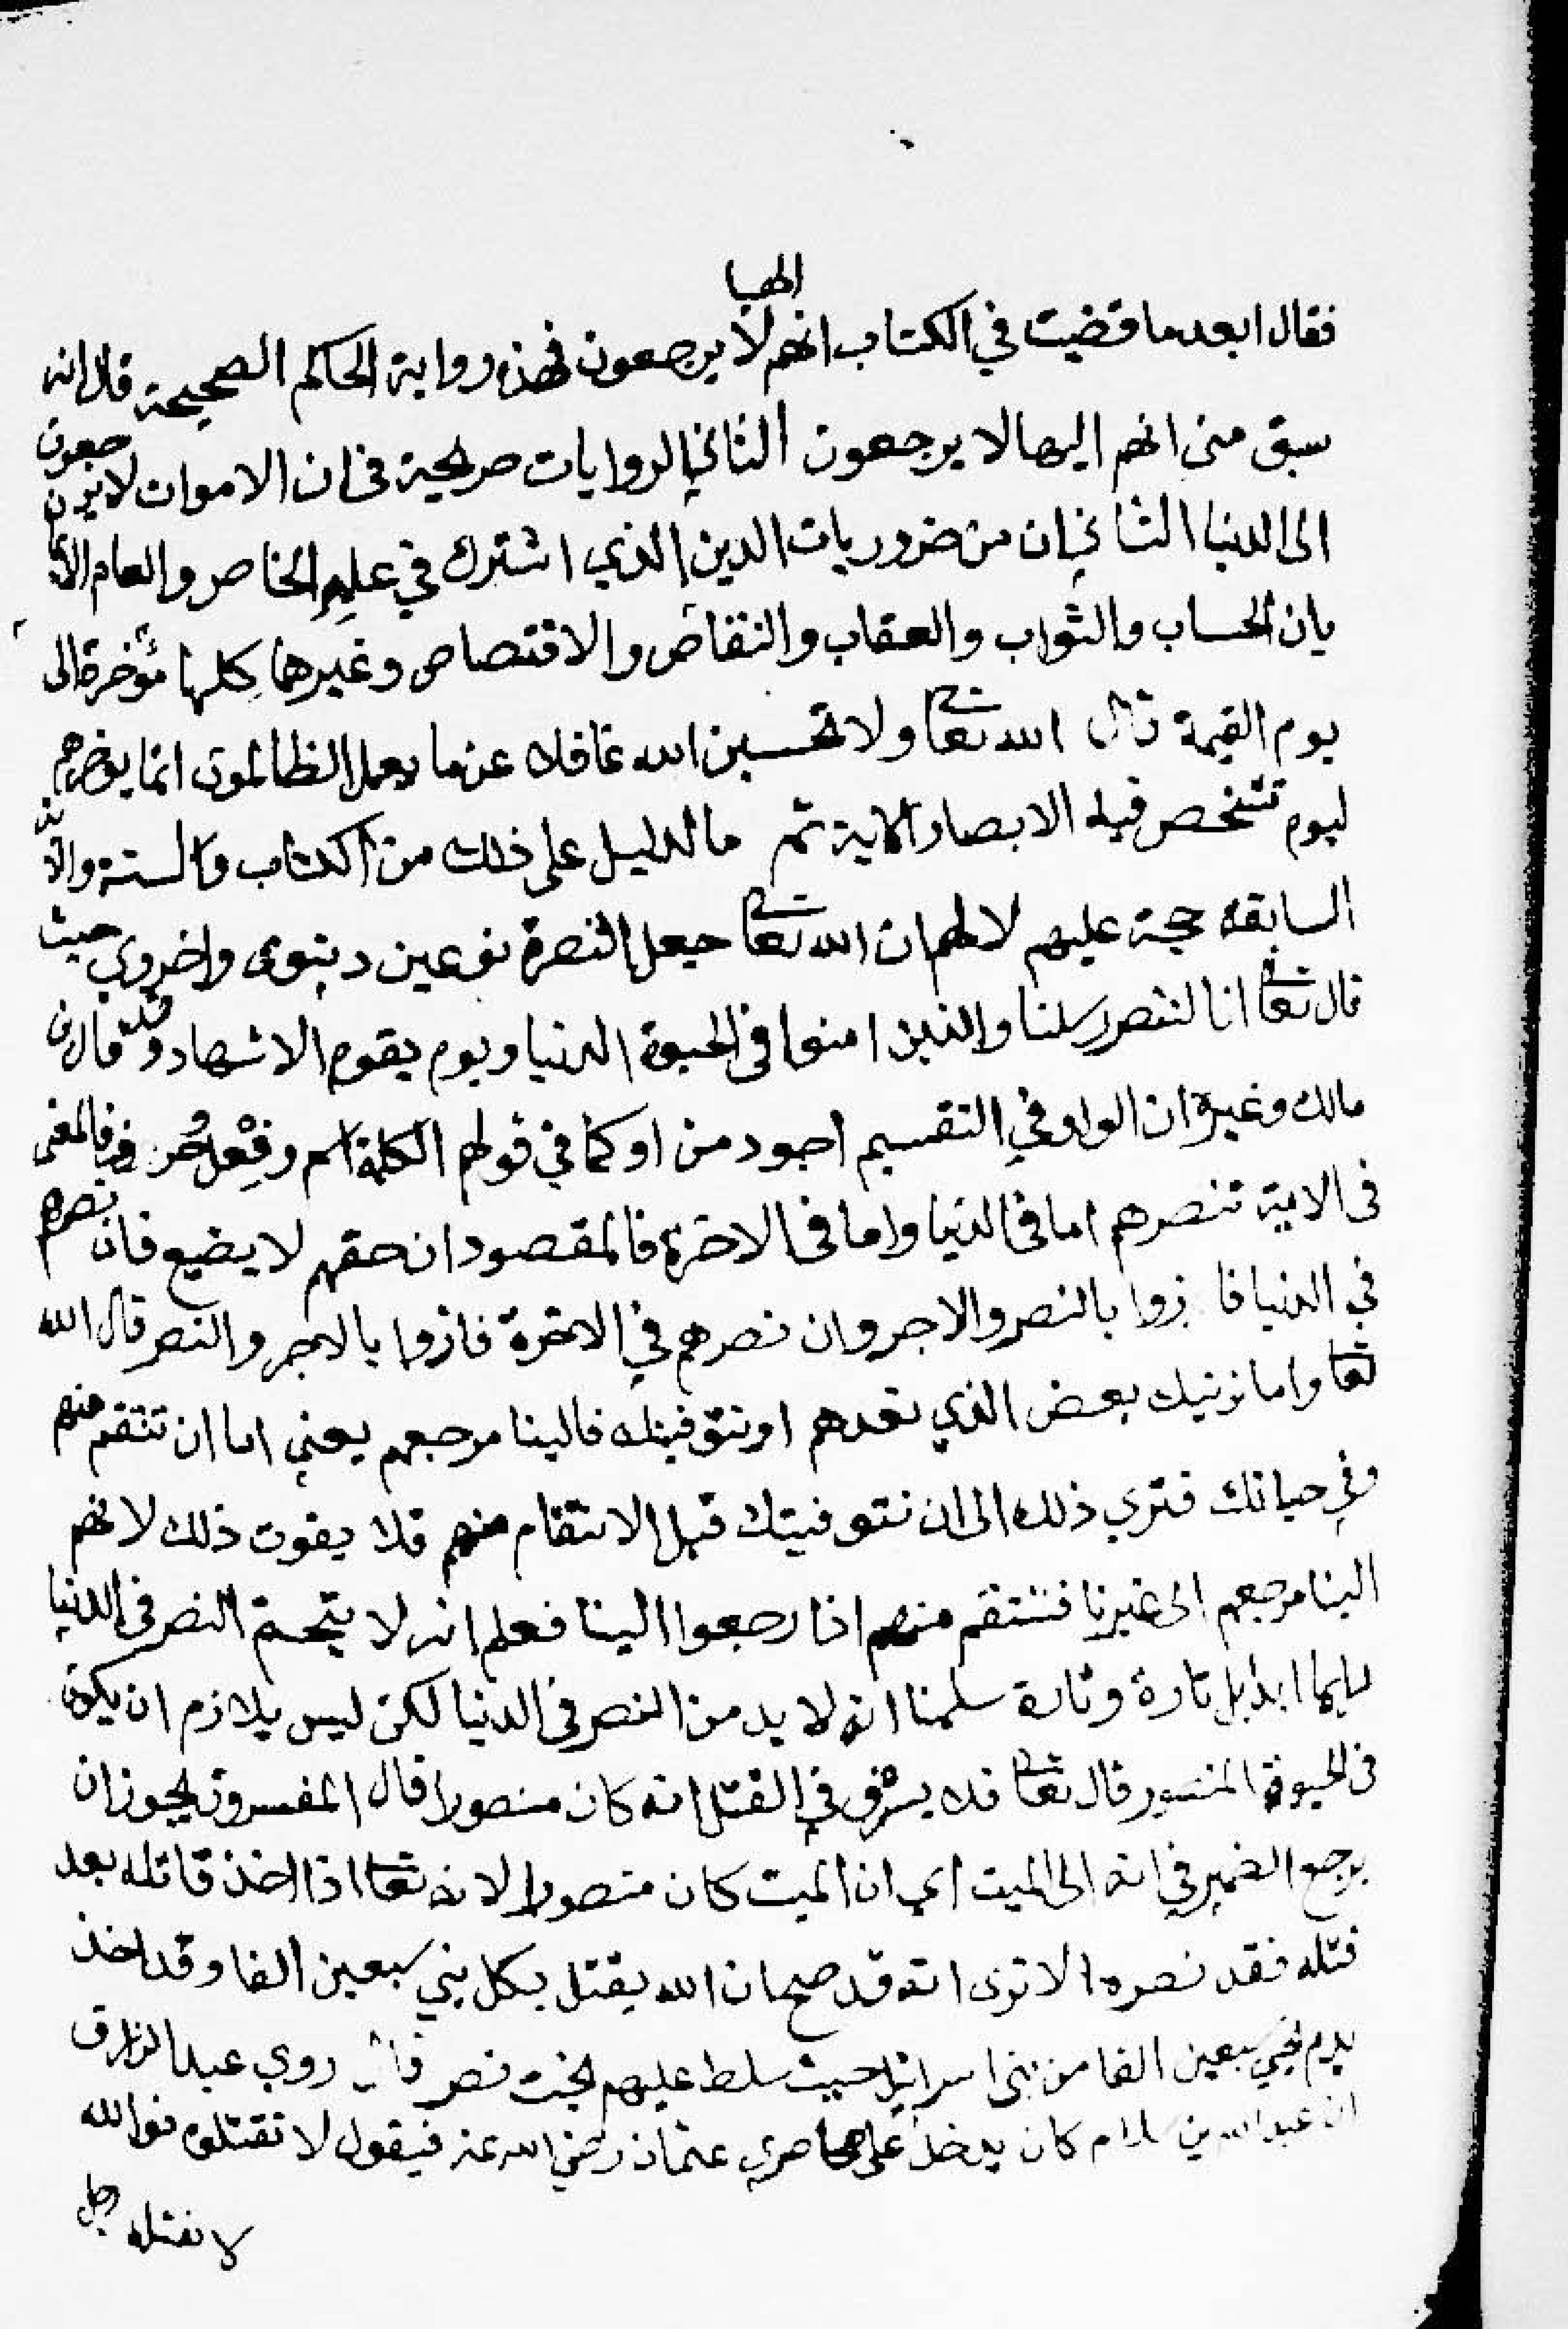 اليها
فقال ابعد ما قضيت في الكتاب انهم لا يرجعون فهذه رواية الحاكم الصحيحة قال انه
سبق مني انهم اليها لا يرجعون الثاني الروايات صريحية في ان الاموات لا يرجعون
الى الدنيا الثاني ان من ضروريات الدين الذي اشترك في علمه الخاص والعام
بان الحساب والثواب والعقاب والتقاص والاقتصاص وغيرهما كلها مؤخرة الى
يوم القيمة قال الله تعا ولا تحسبن الله غافلا عن ما يعمل الظالمون انما يؤخرهم
ليوم تشخص فيه الابصار الاية ثم ما الدليل على ذلك من الكتاب والسنة
السابقة حجة عليهم لا لهم ان الله تعا جعل النصرة نوعين دينوى واخروي حيث
قال تعا انا لننصر رسلنا والذين امنوا في الحيوة الدنيا ويوم يقوم الاشهاد وقد قال ابن
مالك وغيره ان الواو في التقسيم اجود من او كما في قولهم الكلمة اسم وفعل وحرف فالمعنى
في الاية تنصرهم اما في الدنيا واما في الاخرة فالمقصود ان حقهم لا يضيع فان نصرهم
في الدنيا فازوا بالنصر والاجر وان نصرهم في الاخرة فازوا بالاجر والنصر قال الله
تعا واما نرينك بعض الذي نعدهم او نتوفينك فالينا مرجعهم يعني اما ان تنتقم منهم
وفي حياتك فتري ذلك الى ان نتوفيتك قبل الانتقام منهم فلا يفوت ذلك لانهم
الينا مرجعهم الى غيرنا فننتقم منهم اذا رجعوا الينا فعلم انه لا يتحتم النصر في الدنيا
دايما ابدا بل تارة وتارة سلمنا انه لا بد من النصر في الدنيا لكن ليس بلازم ان يكون
في الحيوة المنصور قال تعا فلا يسرف في القتل انه كان منصورا قال المفسرون يجوز ان
يرجع الضمير في انه الى الميت اي ان الميت كان منصورا لانه تعا اذا اخذ قاتله بعد
قتله فقد نصره الا ترى انه قد صح ان الله يقتل بكل نبي سبعين الفا وقد اخذ
بدم يحيى سبعين الفا من بني اسرائيل حيث سلط عليهم بخت نصر قال روي عبد الرزاق
ان عبد الله بن سلام كان يدخل على محاصري عثمان رضي الله عنه فيقول لا تقتلوه فوالله
لا يقتله رجل